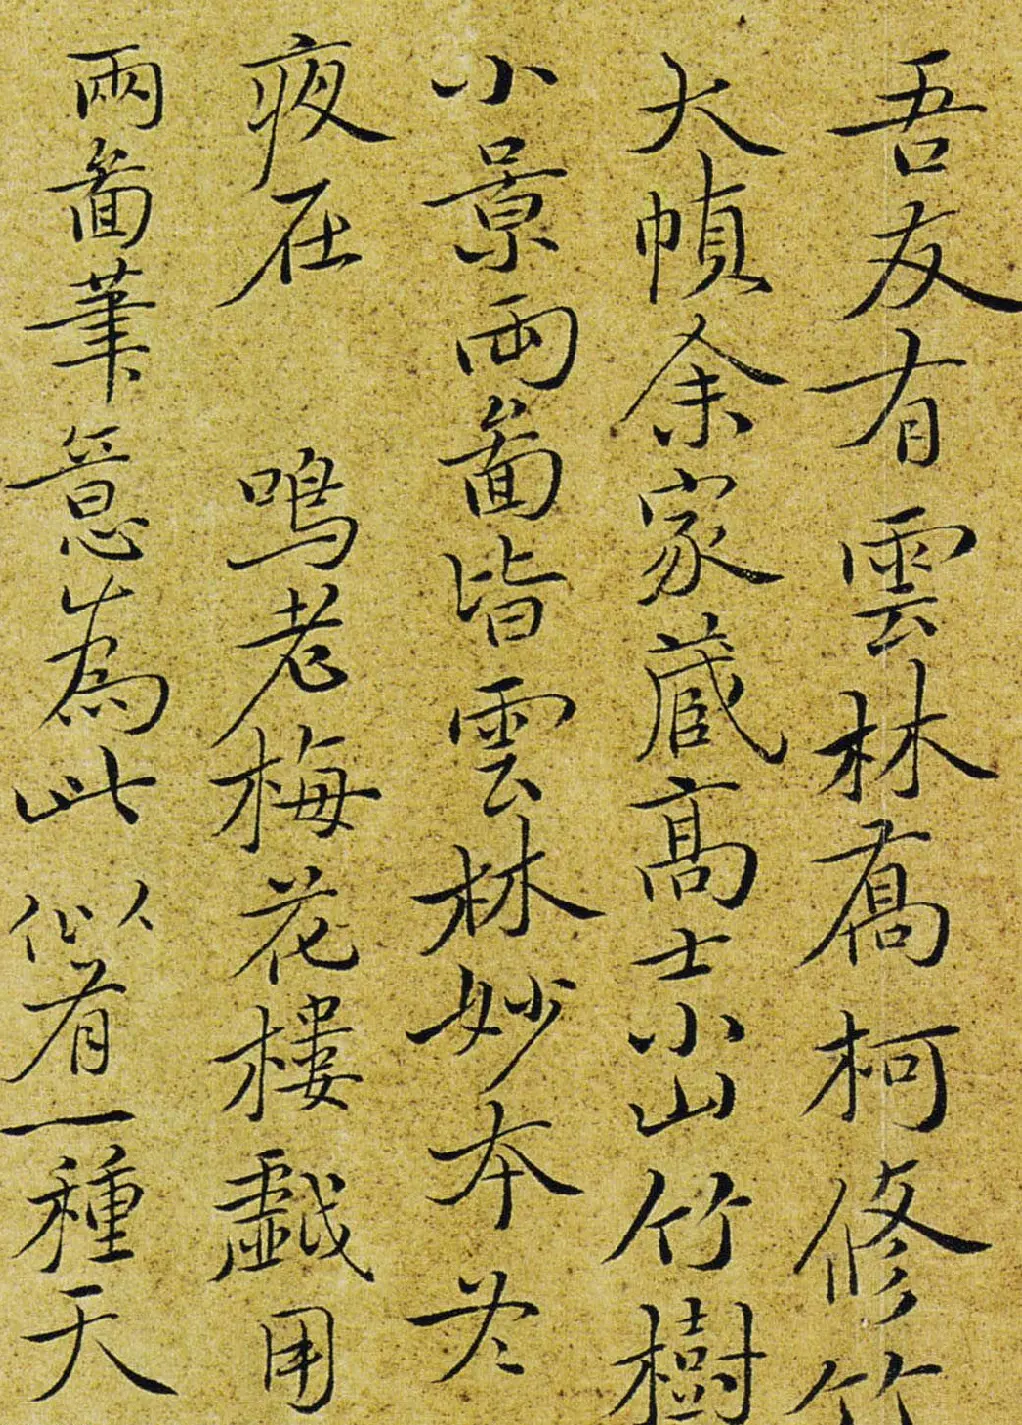 吾友有雲林喬柯修竹
大幀余家藏高士小山竹樹
小景兩箇皆雲林妙本茶
夜在 鳴老梅花樓戲用
兩箇筆意為此似有一種天